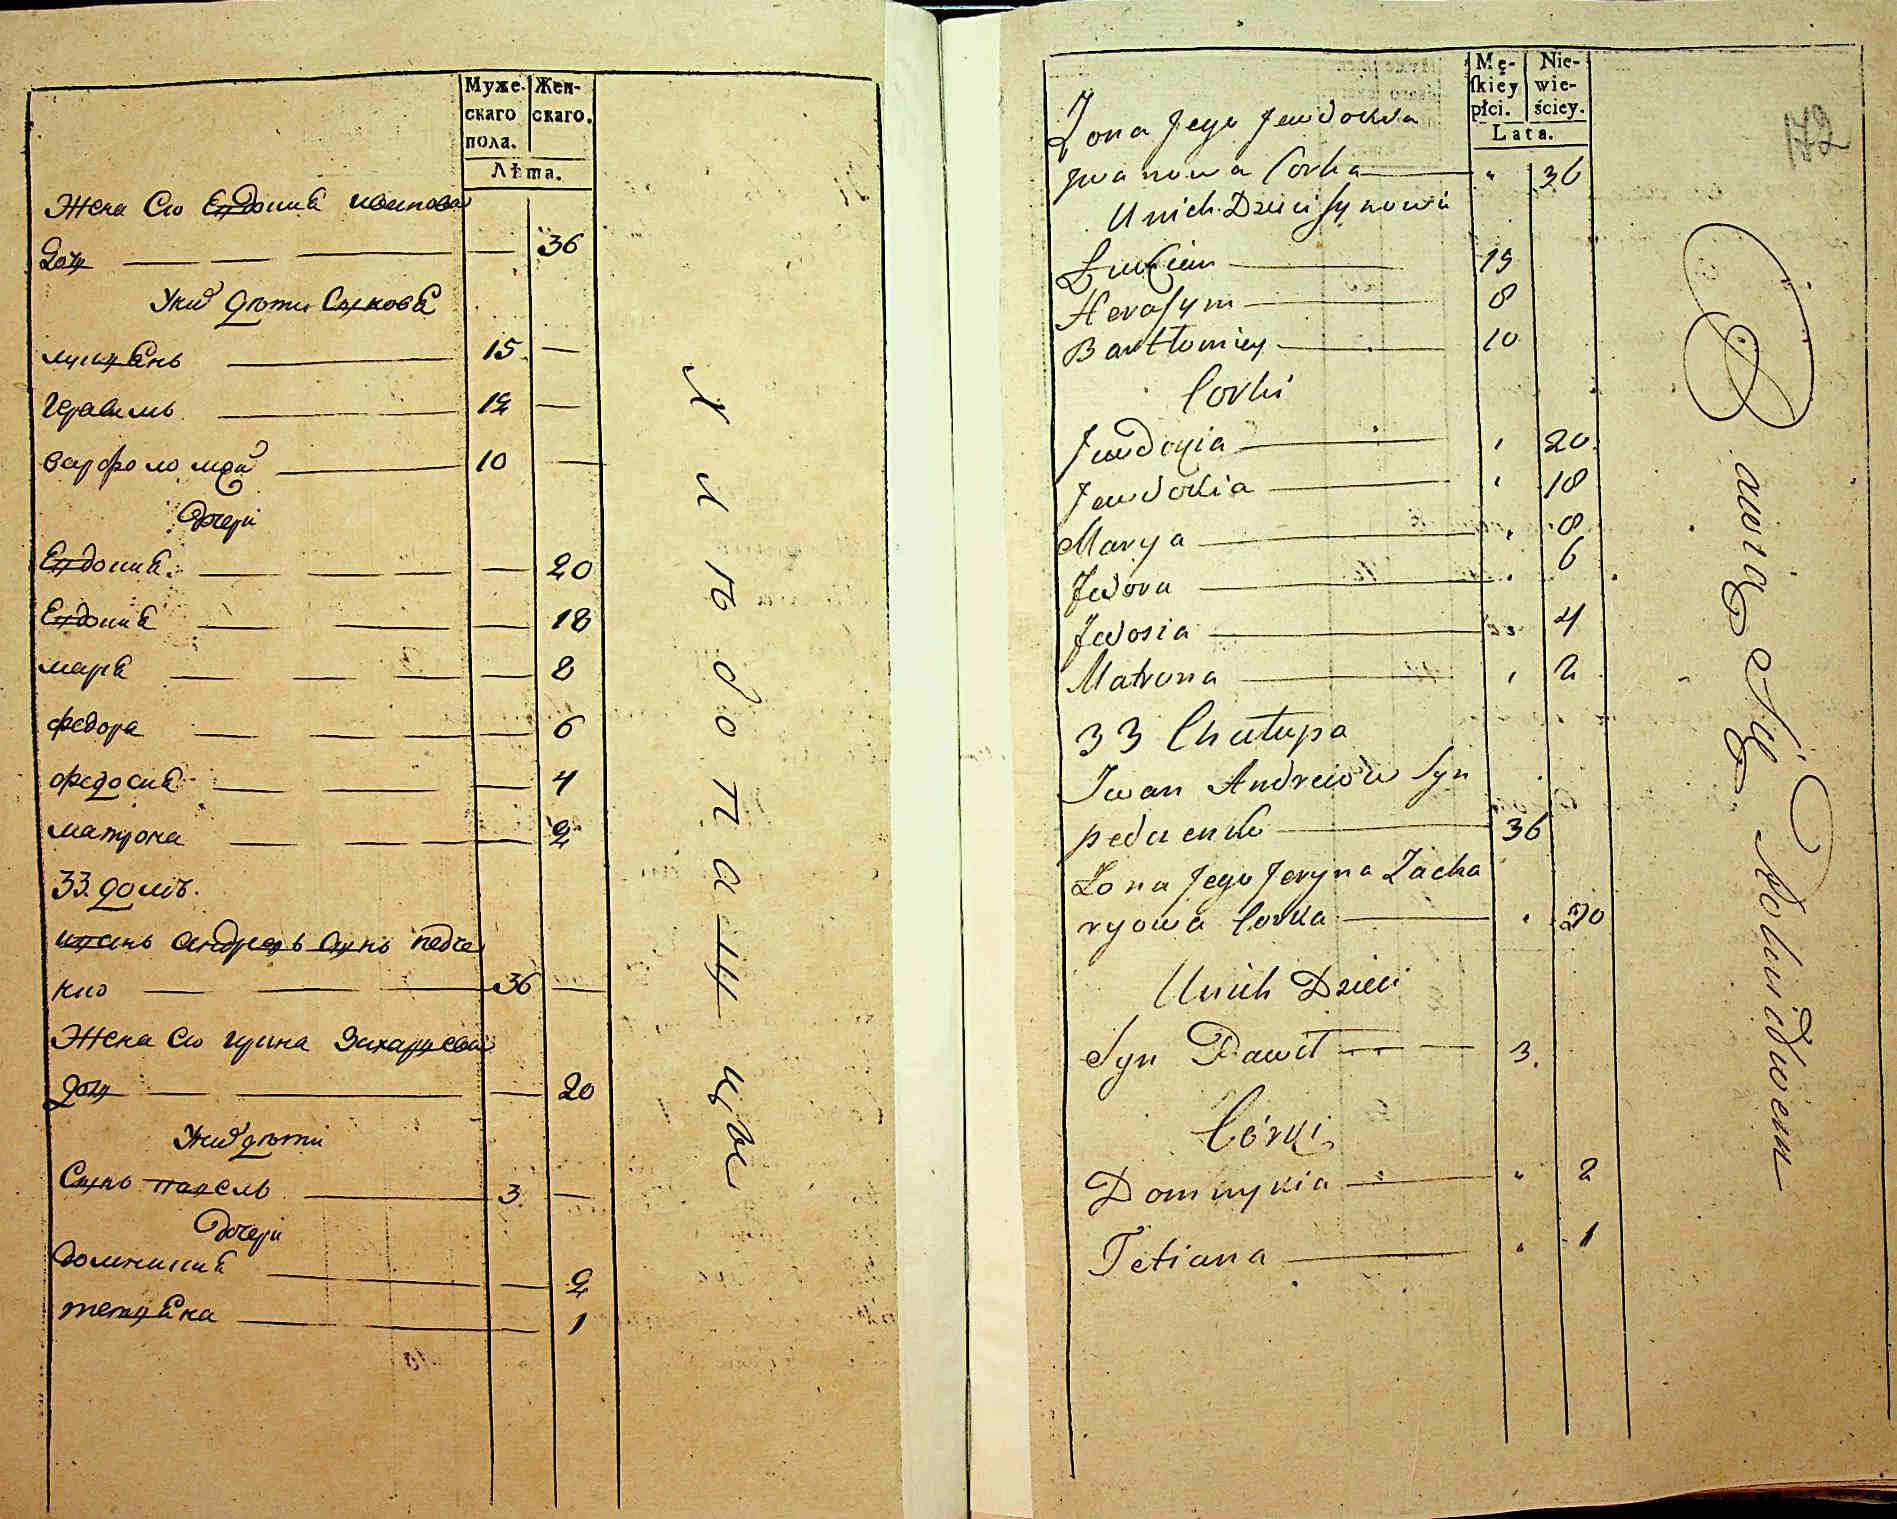 Муже-
скаго
пола.
Жен-
скаго.
Лѣта.
Жена Ею Евдокиа иванова
дочь 36
У них дѣти Сынове
лукиянь 15
Герасимь 12
варфоломей 10
Дочери
Евдокиа 20
Евдокиа 18
мариа 8
федора 6
федосиа 4
матрона 2
33. домъ.
ивань андреевь сынь педче
нко 36
Жена Ею ирина Захариева
дочь 20
У них дѣти
Сынь павель 3
Дочери
Домникиа 2
тетиана 1
хлѣбопашцы
Mę-
ſkiey
płci.
Nie-
wie-
ściey.
Lata.
172
Żona Jego Jewdokia
Jwanowa Corka 36
U nich Dzieci Synowie
Łukian 15
Herasym 8
Bartłomiey 10
Corki
Jewdokia 20
Jewdokia 18
Marya 8
Fedora 6
Fedosia 4
Matrona 2
33 Chałupa
Iwan Andreiow Syn
Pedczenko 36
Żona Jego Jeryna Zacha
ryowa Corka 20
U nich Dzieci
Syn Paweł 3.
Córki
Domnykia 2
Tetiana 1
Bawią Się Rolnictwem